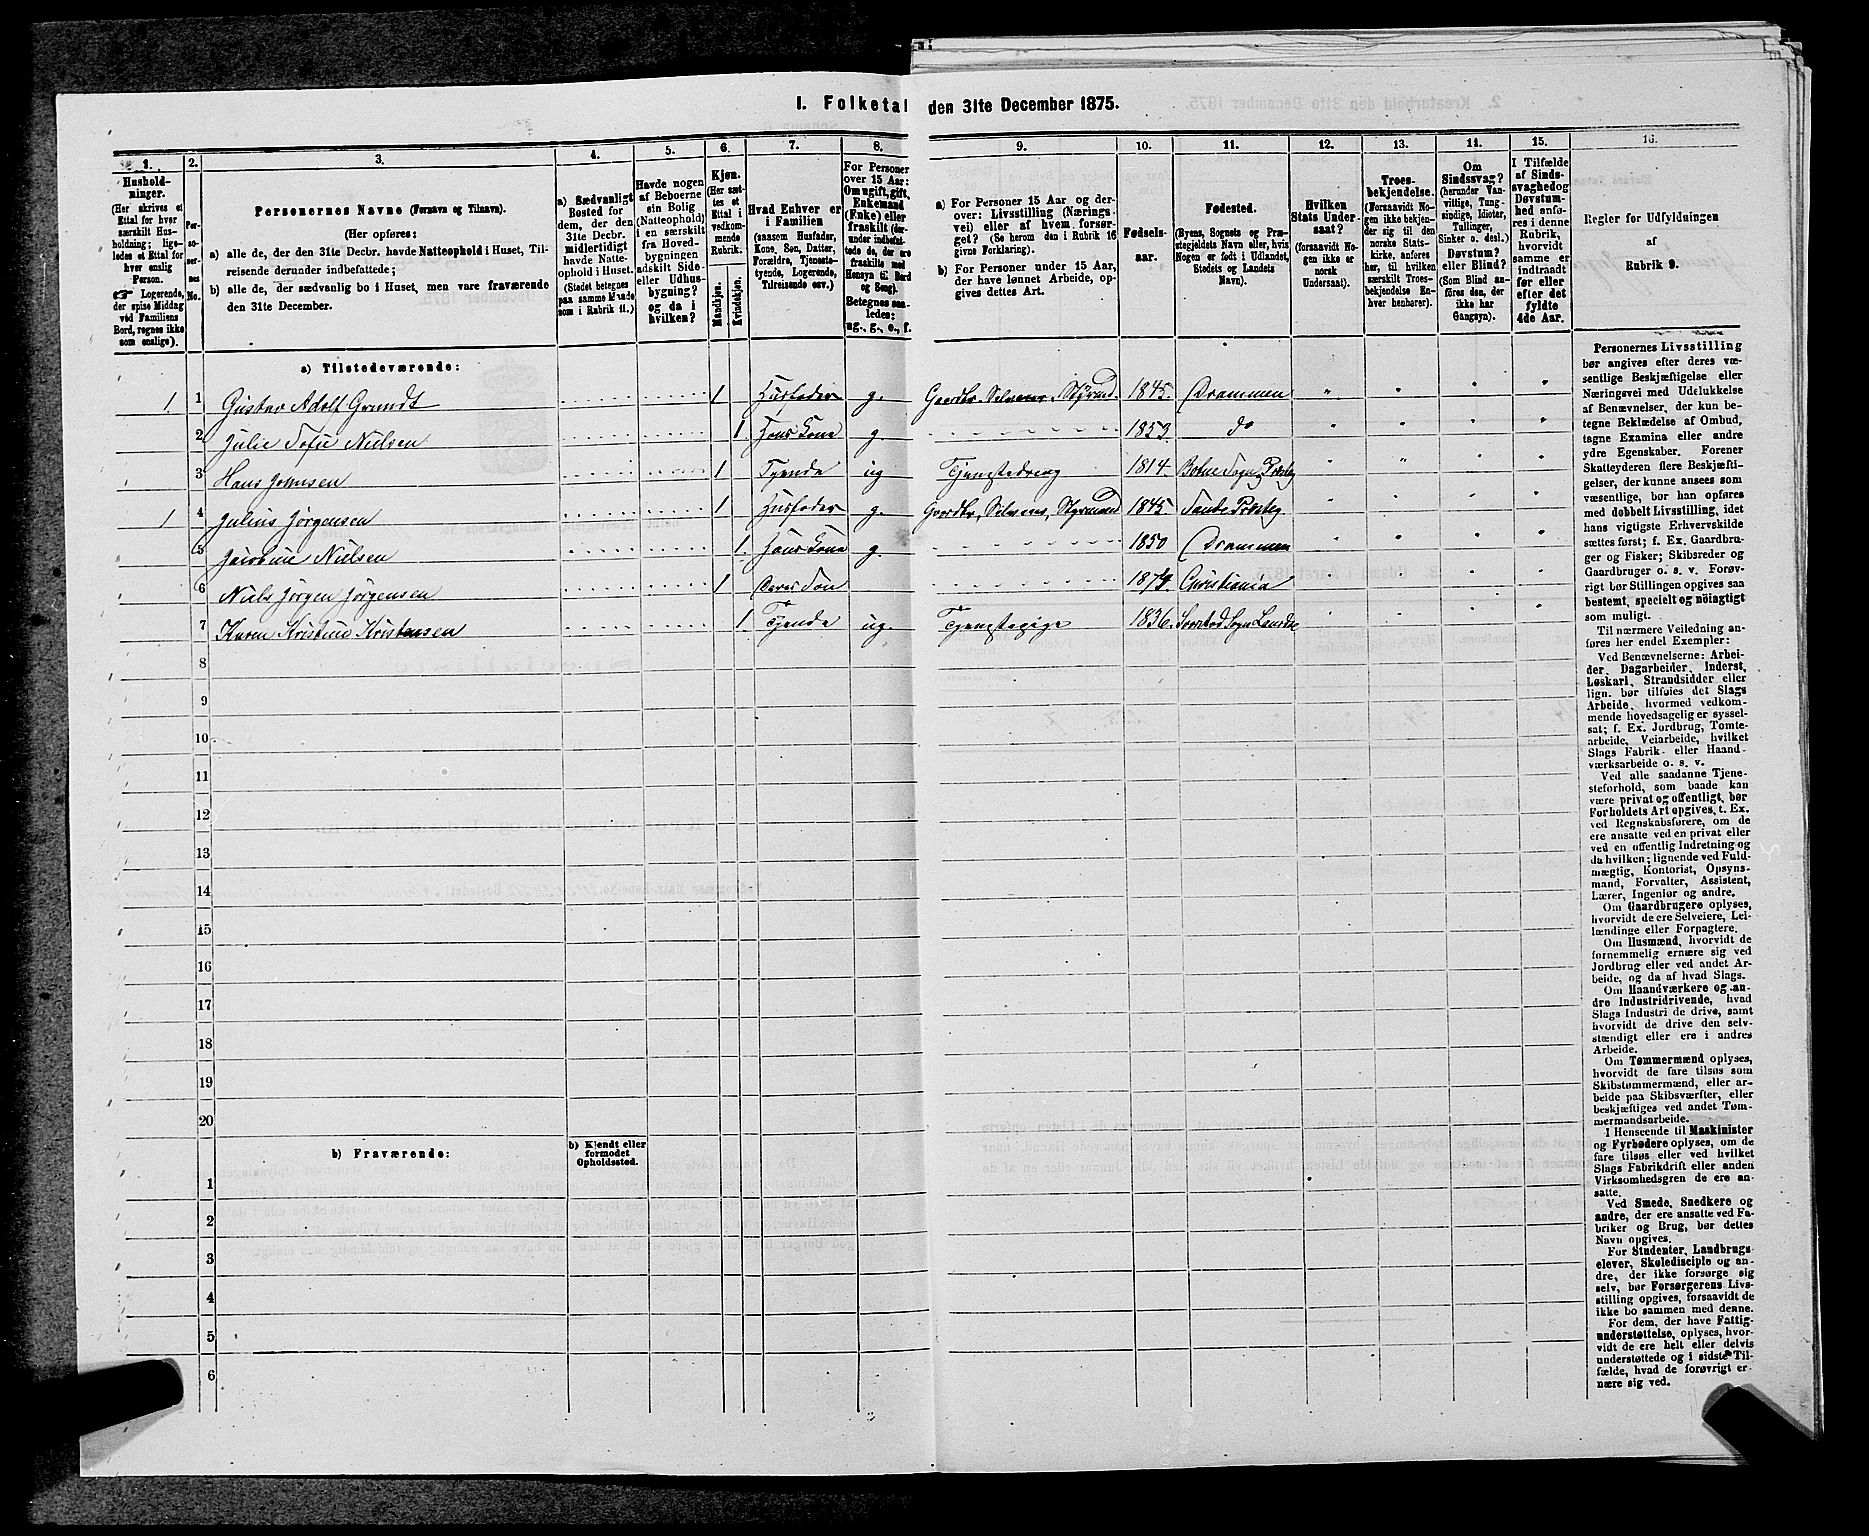 I. Folketal den 31te December 1875.
1.
Hushold-
ninger.
(Her skrives et
Ettal for hver
særskilt Hus-
holdning; lige-
ledes et Ettal for
hver enslig
Person.
☞ Logerende,
der spise Middag
ved Familiens
Bord, regnes ikke
som enslige).
2.
Per-
so-
ner-
nes
No.
3.
Personernes Navne (Fornavn og Tilnavn).
(Her opføres:
a) alle de, der den 31te Decbr. havde Natteophold i Huset, Til-
reisende derunder indbefattede;
b) alle de, der sædvanlig bo i Huset, men vare fraværende
den 31te December.
4.
a) Sædvanligt
Bosted for
dem, der den
31te Decbr.
midlertidigt
havde Natte-
ophold i Huset.
(Stedet betegnes
paa samme Maade
som i Rubrik 11.)
5.
Havde nogen
af Beboerne
sin Bolig
(Natteophold)
i en særskilt
fra Hoved-
bygningen
adskilt Side-
eller Udhus-
bygning?
og da i
hvilken?
6.
Kjøn.
(Her sæt-
tes et
Ettal i
vedkom-
mende
Rubrik.
Mandkjøn.
Kvindekjøn.
7.
Hvad Enhver er
i Familien
(saasom Husfader,
Kone, Søn, Datter,
Forældre, Tjeneste-
tyende, Logerende,
Tilreisende osv.)
8.
For Personer
over 15 Aar:
Om ugift, gift,
Enkemand
(Enke) eller
fraskilt (der-
under indbefat-
tede de, der ere
fraskilte med
Hensyn til Bord
og Seng).
Betegnes saa-
ledes:
ug., g., e., f.
9.
a) For Personer 15 Aar og der-
over: Livsstilling (Nærings-
vei) eller af hvem forsør-
get? (Se herom den i Rubrik 16
givne Forklaring).
b) For Personer under 15 Aar,
der have lønnet Arbeide, op-
gives dettes Art.
10.
Fødsels-
aar.
11.
Fødested.
(Byens, Sognets og Præ-
stegjeldets Navn eller, hvis
Nogen er født i Udlandet,
Stedets og Landets
Navn).
12.
Hvilken
Stats Under-
saat?
(forsaavidt No-
gen ikke er
norsk
Undersaat).
13.
Troes-
bekjendelse.
(Forsaavidt No-
gen ikke bekjen-
der sig til den
norske Stats-
kirke, anføres
her, til hvilken
særskilt Troes-
bekjendelse En-
hver henhører).
14.
Om
Sindssvag?
(herunder Van-
vittige, Tung-
sindige, Idioter,
Tullinger,
Sinker o. desl.)
Døvstum?
eller Blind?
(Som Blind an-
føres den, der
ikke har
Gangsyn).
15.
I Tilfælde
af Sinds-
svaghed og
Døvstum-
hed anfø-
res i denne
Rubrik,
hvorvidt
samme er
indtraadt
før eller
efter det
fyldte
4de Aar.
16.
Regler for Udfyldningen
af
Rubrik 9.
a) Tilstedeværende:
1. 1 Gustav Adolf Grundt 1 Husfader g. Gaardbr. Selveier, Styrmd. 1845. Drammen
2 Julie Sofie Nielsen 1. Hans Kone g. 1853. do
3 Hans Johnsen 1 Tyende ug Tjenestedreng 1814. Botne Sogn Præstegj
1 4 Julius Jørgensen 1 Husfader g. Gaardbr, Selveier, Styrmand 1845. Sande Præsteg
5 Jacobine Nielsen 1. Hans Kone g. 1850 Drammen
6 Niels Jørgen Jørgensen 1 Deres Søn 1874. Christiania
7 Karen Kristine Kristensen 1 Tyende ug. Tjenestepige 1836. Sogn
8
9
10
11
12
13
14
15
16
17
18
19
20
b) Fraværende:
b) Kjendt eller
formodet
Opholdssted.
1
2
3
4
5
6
Personernes Livsstilling
bør angives efter deres væ-
sentlige Beskjæftigelse eller
Næringsvei med Udelukkelse
af Benævnelser, der kun be-
tegne Beklædelse af Ombud,
tagne Examina eller andre
ydre Egenskaber. Forener
Skatteyderen flere Beskjæfti-
gelser, der kunne ansees som
væsentlige, bør han opføres
med dobbelt Livsstilling, idet
hans vigtigste Erhvervskilde
sættes først; f. Ex. Gaardbru-
ger og Fisker; Skibsreder og
Gaardbruger o. s. v. Forøv-
rigt bør Stillingen opgives saa
bestemt, specielt og nöiagtigt
som muligt.
Til nærmere Veiledning an-
føres her endel Exempler:
Ved Benævnelserne: Arbei-
der, Dagarbeider, Inderst,
Løskarl, Strandsidder eller
lign. bør tilføies det Slags
Arbeide, hvormed vedkom-
mende hovedsagelig er syssel-
sat; f. Ex. Jordbrug, Tomte-
arbeide, Veiarbeide, hvilket
Slags Fabrik- eller Haand-
værksarbeide o. s. v.
Ved alle saadanne Tjene-
steforhold, som baade kan
være privat og offentligt, bør
Forholdets Art opgives, t. Ex.
ved Regnskabsførere, om de
ere ansatte ved en privat eller
ved en offentlig Indretning og
da hvilken; lignende ved Fuld-
mægtig, Kontorist, Opsyns-
mand, Forvalter, Assistent,
Lærer, Ingeniør og andre.
Om Gaardbrugere oplyses,
hvorvidt de ere Selveiere, Lei-
lændinge eller Forpagtere.
Om Husmænd, hvorvidt de
fornemmelig ernære sig ved
Jordbrug eller ved andet Ar-
beide, og da af hvad Slags.
Om Haandværkere og an-
dre Industridrivende, hvad
Slags Industri de drive, samt
hvorvidt de drive den selv-
stændigt eller ere i andres
Arbeide.
Om Tømmermænd oplyses,
hvorvidt de fare tilsøs som
Skibstømmermænd, eller ar-
beide paa Skibsværfter, eller
beskjæftiges ved andet Tøm-
mermandsarbeide.
I Henseende til Maskinister
og Fyrbødere oplyses, om de
fare tilsøs eller ved hvilket
Slags Fabrikdrift eller anden
Virksomhedsgren de ere an-
satte.
Ved Smede, Snedkere og
andre, der ere ansatte ved Fa-
briker og Brug, bør dettes
Navn opgives.
For Studenter, Landbrugs-
elever, Skoledisciple og an-
dre, der ikke forsørge sig
selv, bør Forsørgerens Livs-
stilling opgives, forsaavidt de
ikke bo sammen med denne.
For dem, der have Fattig-
understøttelse, oplyses, hvor-
vidt de ere helt eller delvis
understøttede og i sidste Til-
fælde, hvad de forøvrigt er-
nære sig ved.